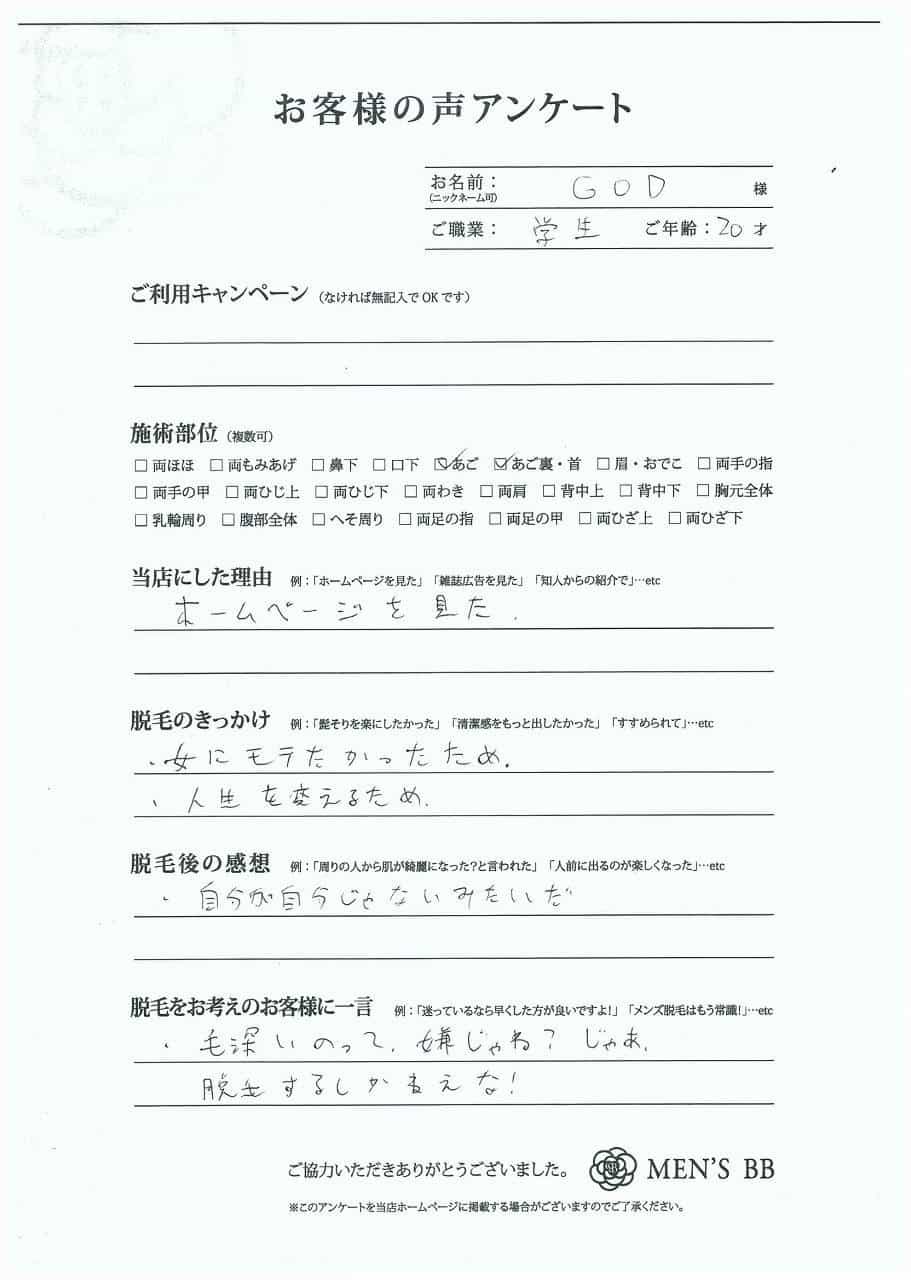 お客様の声アンケート
お名前：
(ニックネーム可)
GOD 様
ご職業： 学生 ご年齢：20才
ご利用キャンペーン（なければ無記入でOKです）
施術部位（複数可）
□両ほほ □両もみあげ □鼻下 □口下 ☑あご ☑あご裏・首 □眉・おでこ □両手の指
□両手の甲 □両ひじ上 □両ひじ下 □両わき □両肩 □背中上 □背中下 □胸元全体
□乳輪周り □腹部全体 □へそ周り □両足の指 □両足の甲 □両ひざ上 □両ひざ下
当店にした理由 例：「ホームページを見た」「雑誌広告を見た」「知人からの紹介で」…etc
ホームページを見た.
脱毛のきっかけ 例：「髭そりを楽にしたかった」「清潔感をもっと出したかった」「すすめられて」…etc
・女にモテたかったため.
・人生を変えるため.
脱毛後の感想 例：「周りの人から肌が綺麗になった?と言われた」「人前に出るのが楽しくなった」…etc
・自分が自分じゃないみたいだ
脱毛をお考えのお客様に一言 例：「迷っているなら早くした方が良いですよ!」「メンズ脱毛はもう常識!」…etc
・毛深いのって、嫌じゃね？じゃあ、
脱毛するしかねえな！
ご協力いただきありがとうございました。 MEN'S BB
※このアンケートを当店ホームページに掲載する場合がございますのでご了承ください。